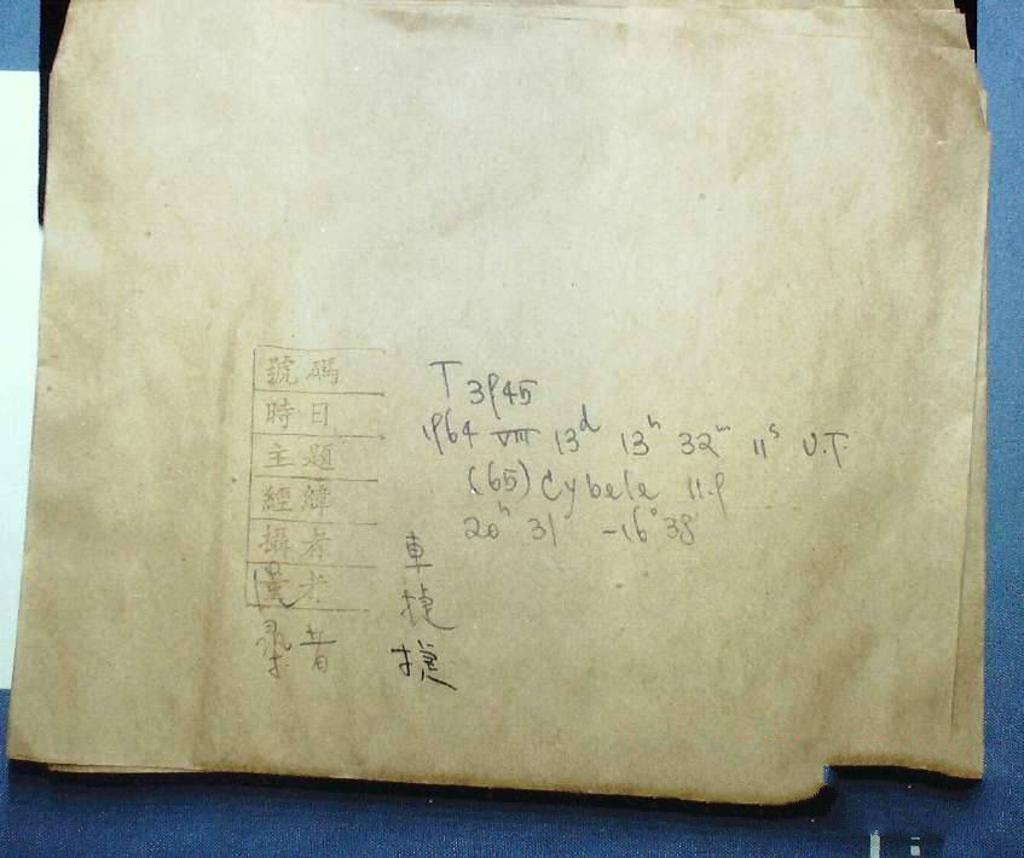 號碼 T 3945
時日 1964 VIII 13d 13h 32m 11s U.T.
主題 (65) Cybele 11.9
經緯 20h 31 -16° 38'
攝者 車
量者 捷
者